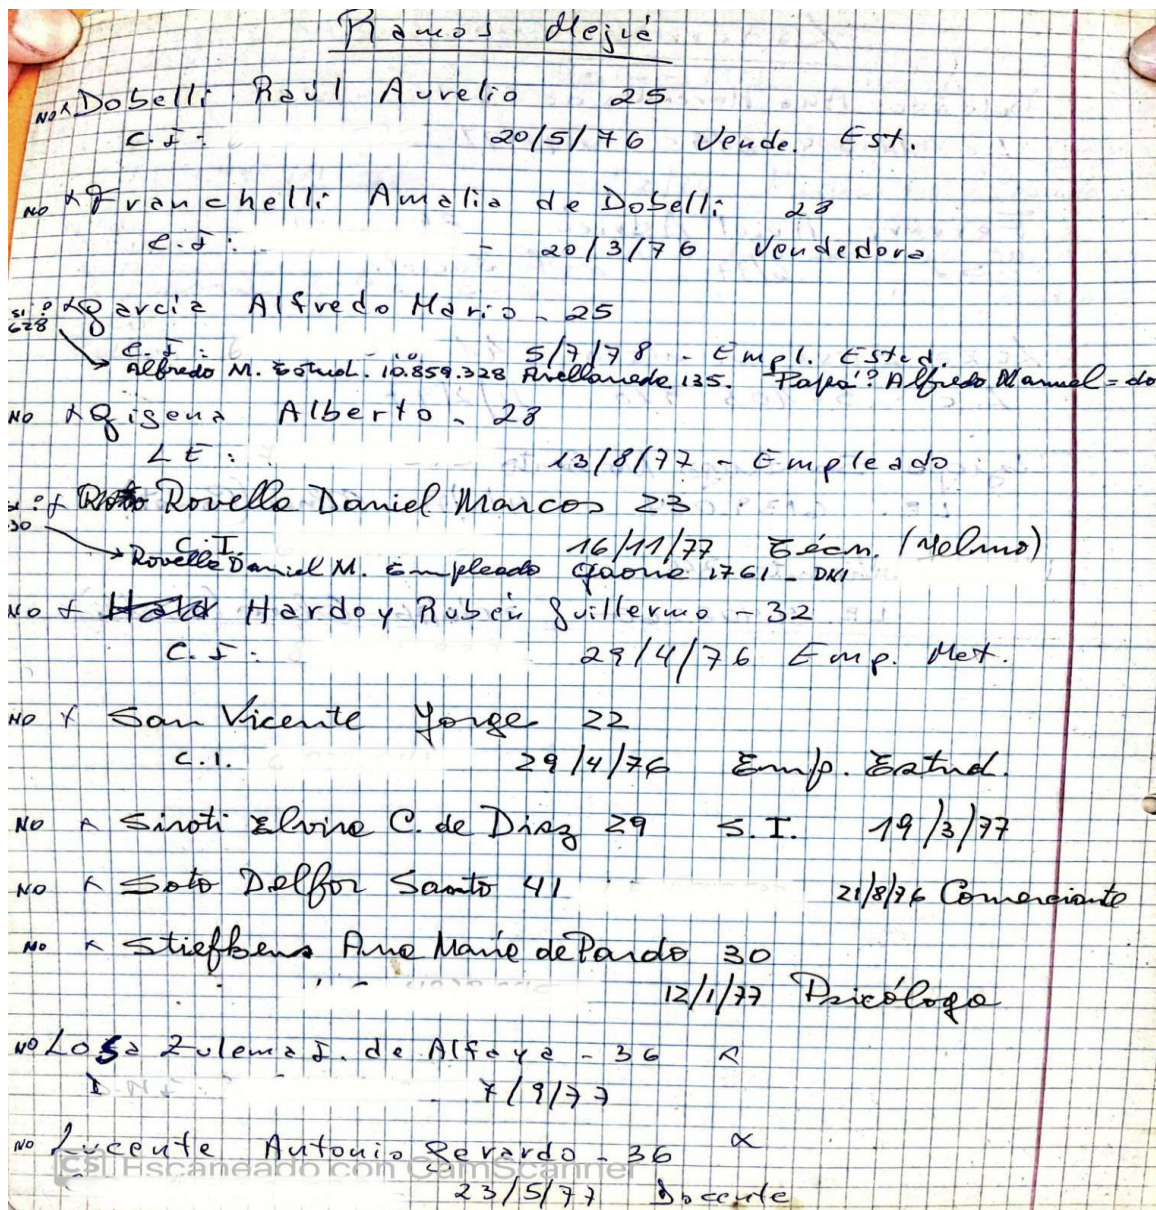 Ramos Mejía
NO x Dobelli Raúl Aurelio 25
C.I: 20/5/76 Vende. Est.
NO x Franchelli Amalia de Dobelli 23
C.I: - 20/3/76 Vendedora
SI: x García Alfredo Mario - 25
628
C.I: 5/7/78 - Empl. Estud.
Alfredo M. Estud. 10.859.328 Avellaneda 135. Papá? Alfredo Manuel = do
NO x Gigena Alberto - 28
LE: 13/8/77 - Empleado
x Rovella Daniel Marcos 23
30
C.I. 16/11/77 Técn.
Rovella Daniel M. Empleado Gaona 1761 - DNI
NO x Hardoy Rubén Guillermo - 32
C.I: 29/4/76 Emp. Met.
NO x San Vicente Jorge 22
C.I. 29/4/76 Emp. Estud.
NO x Siroti Elvira C. de Diaz 29 S.I. 19/3/77
NO x Soto Delfor Santo 41 21/8/76 Comerciante
NO x Stiefkens Ana María de Pardo 30
12/1/77 Psicóloga
NO Losa Zulema J. de Alfaya - 36 x
7/9/77
NO Lucente Antonio Gerardo - 36 x
CS Escaneado con CamScanner
23/5/77 Docente